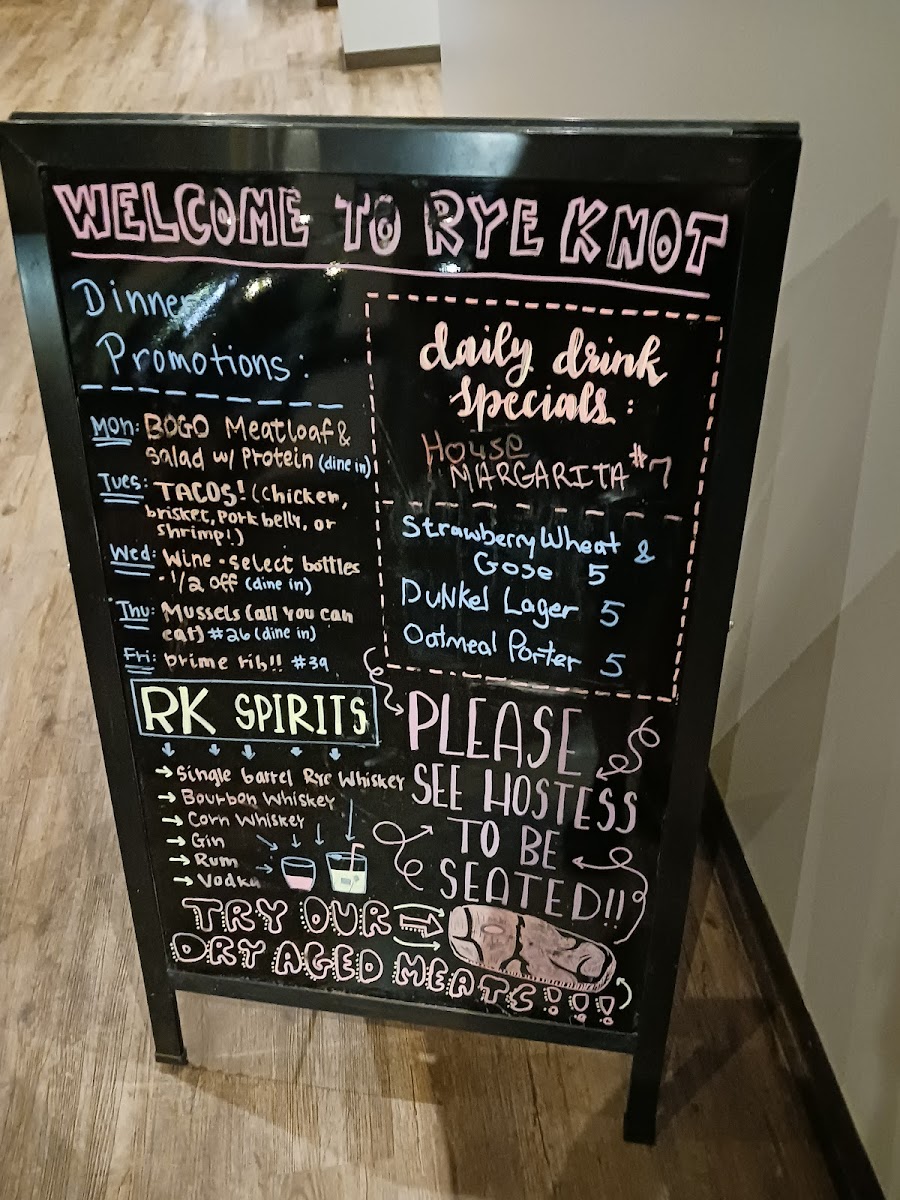 WELCOME TO RYE KNOT
Dinner
Promotions:
Mon: BOGO Meatloaf &
Salad w/ Protein (dine in)
Tues: TACOS! (Chicken,
brisket, Pork belly, or
shrimp!)
Wed: Wine - select bottles
- 1/2 off (dine in)
Thu: Mussels (all you can
eat) #26 (dine in)
Fri: prime rib!! #39
daily drink
specials:
House
MARGARITA #7
Strawberry Wheat &
Gose 5
Dunkel Lager 5
Oatmeal Porter 5
RK SPIRITS
→ Single barrel Rye Whiskey
→ Bourbon Whiskey
→ Corn Whiskey
→ Gin
→ Rum
→ Vodka
PLEASE
SEE HOSTESS
TO BE
SEATED!!
TRY OUR
DRY AGED MEATS!!!